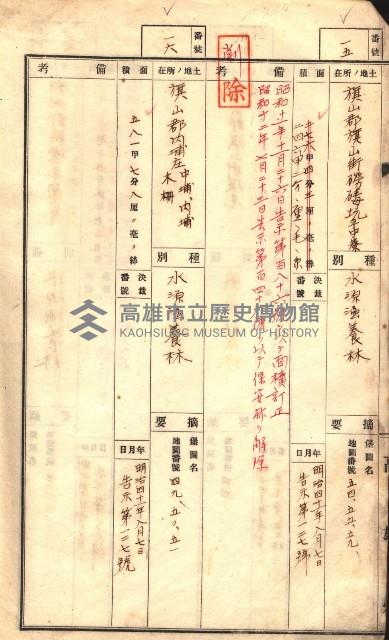 番號
一五
土地ノ所在
旗山郡旗山街磅磚坑子中寮
種別
水源涵養林
摘要
堡圖名
地圖番號
五四、五五、五九、
面積
甲
分
厘
毛
絲
決裁番號
年月日
明治四十一年八月七日
告示第一二七號
備考
昭和十一年十一月二十六日告示第百八十
以テ面積訂正
昭和十二年七月二十三日告示第百四十
以テ保安林ヲ解除
削除
番號
一六
土地ノ所在
旗山郡內埔庄中埔、內埔
木柵
種別
水源涵養林
摘要
堡圖名
地圖番號
四九、五〇、五一
面積
五八一甲七分八厘、毫、絲
決裁番號
年月日
明治四十一年八月七日
告示第一二七號
備考
高雄市立歷史博物館
KAOHSIUNG MUSEUM OF HISTORY